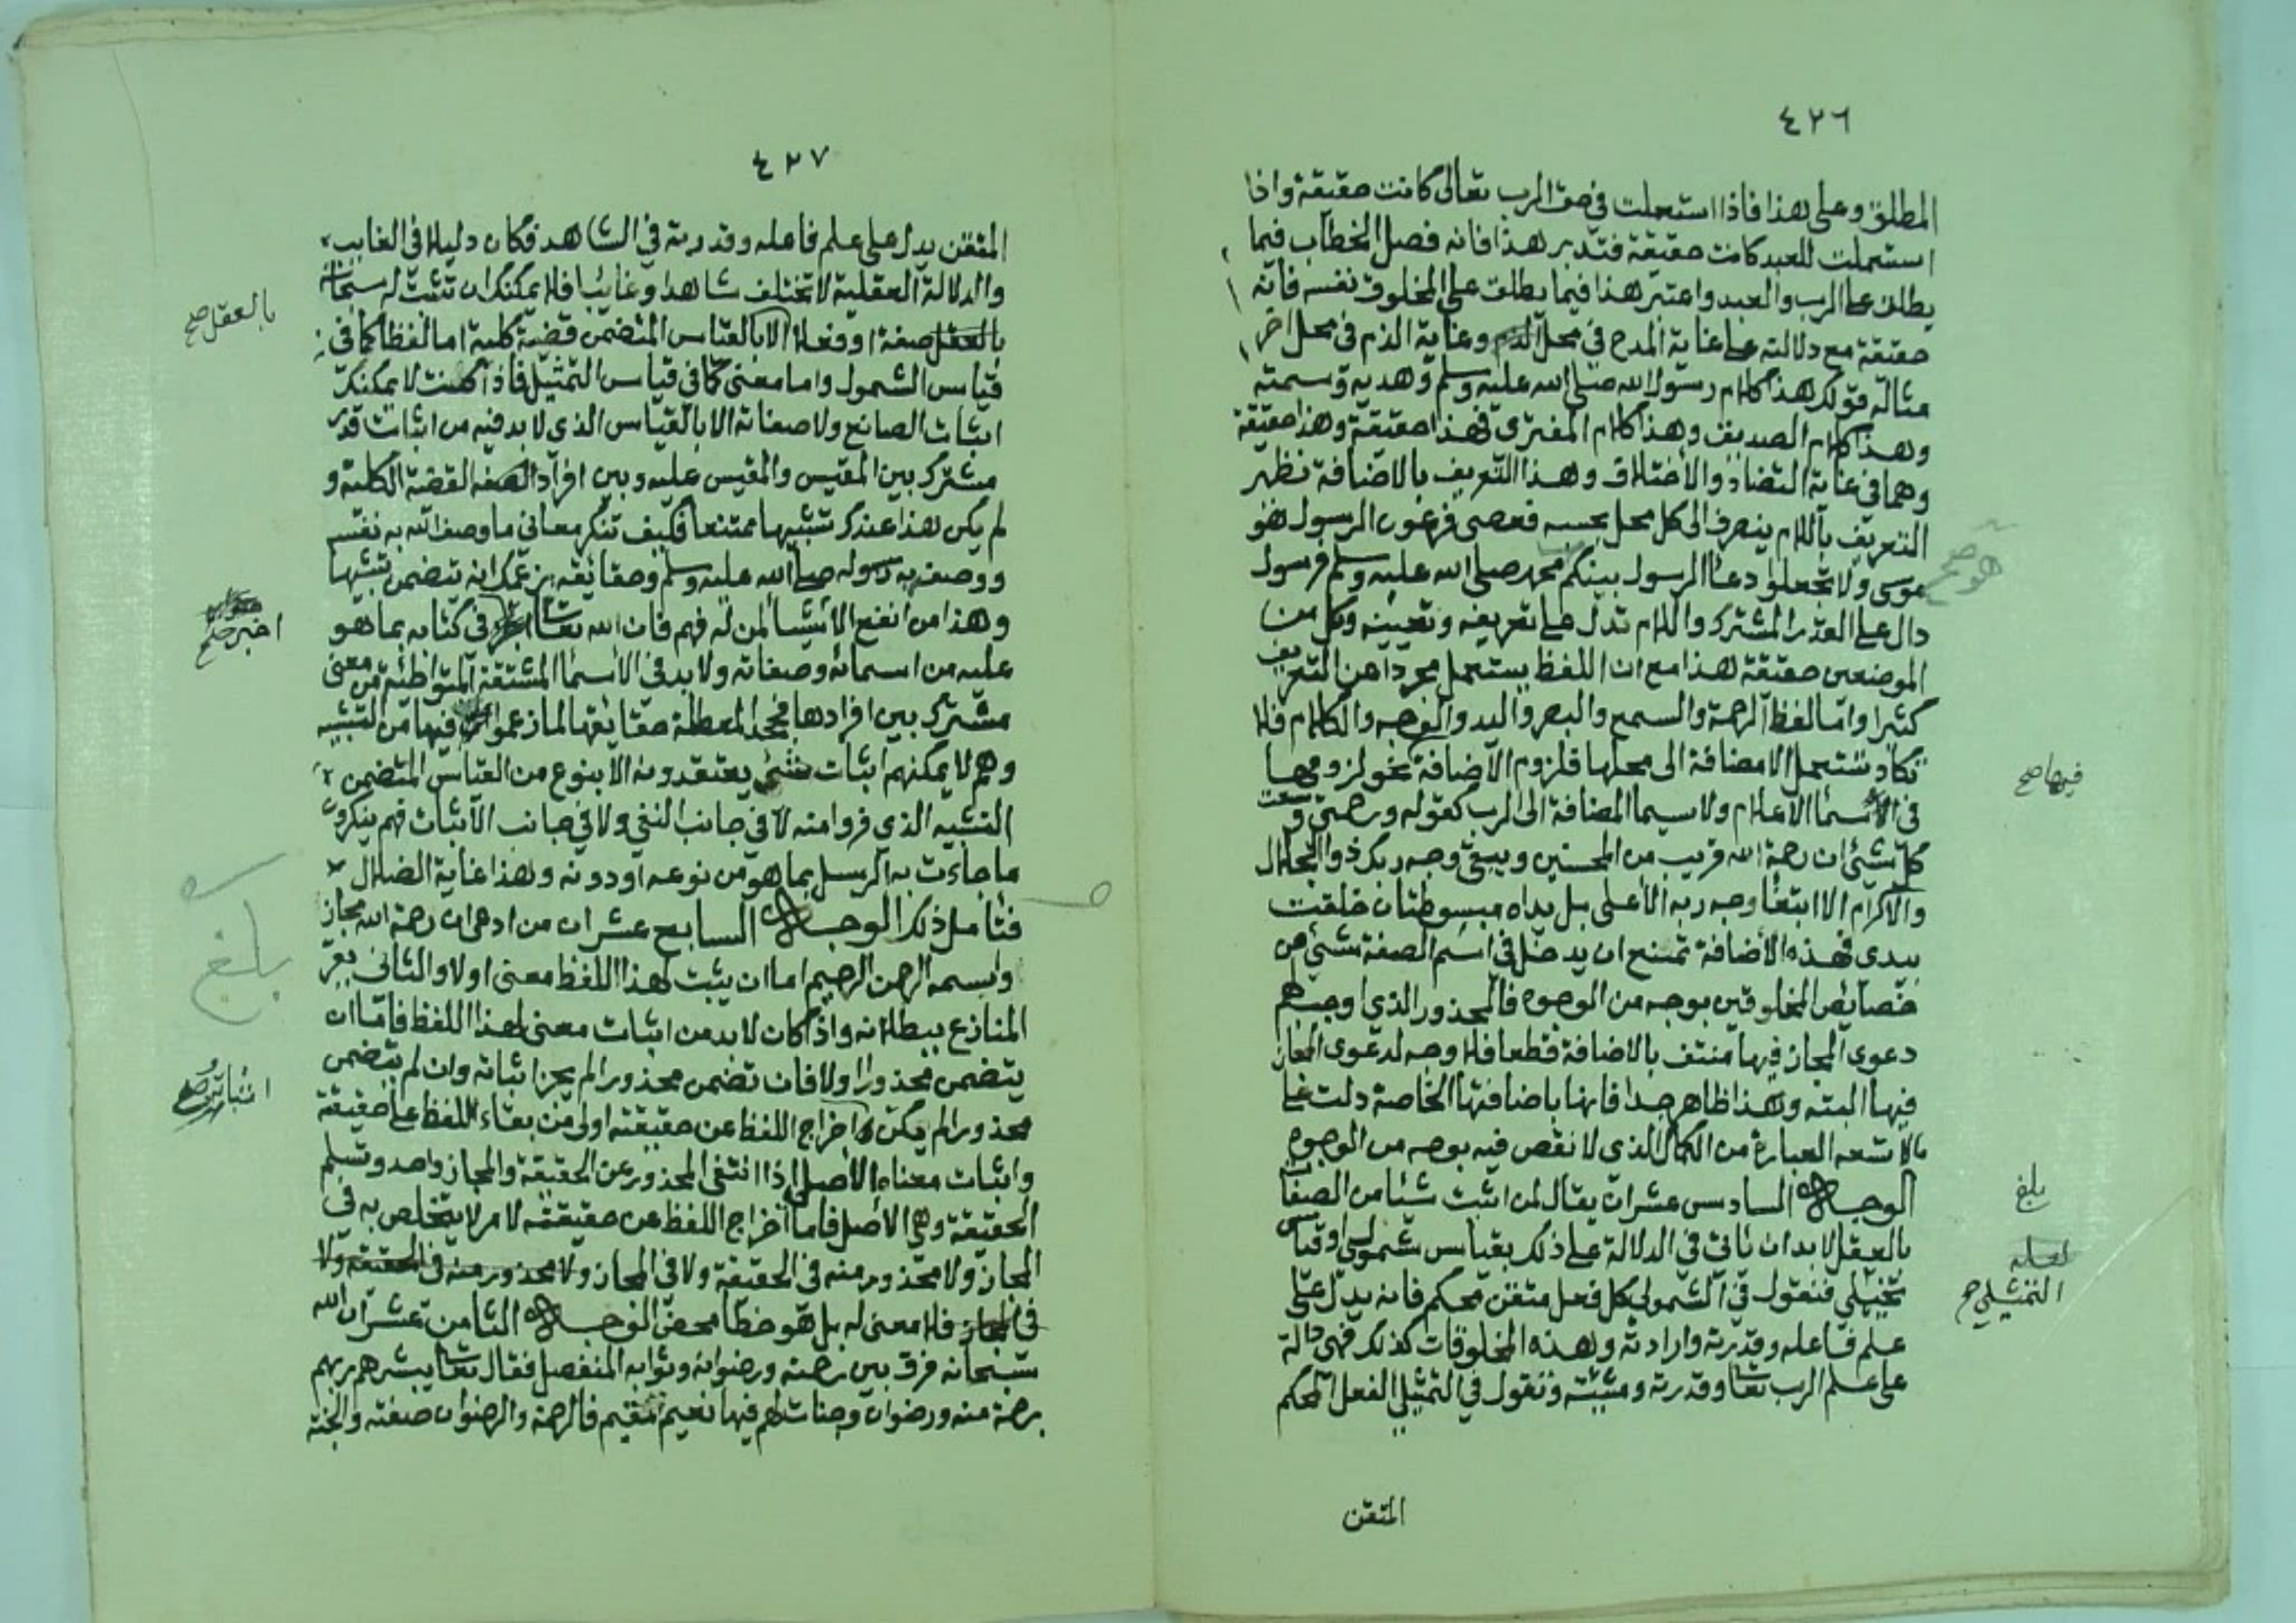 ٤٢٦
المطلق وعلى هذا فاذا استعملت في حق الرب تعالى كانت حقيقة واذا
استعملت للعبد كانت حقيقة فتدبر هذا فانه فصل الخطاب فيما
يطلق على الرب والعبد واعتبر هذا فيما يطلق على المخلوق نفسه فانه
حقيقة مع دلالته على غاية المدح في محل وغاية الذم في محل اخر
مثاله قولك هذا كلام رسول الله صلى الله عليه وسلم وهديه وسمته
وهذا كلام الصديق وهذا كلام المفترى فهذا حقيقة وهذا حقيقة
وهما في غاية التضاد والاختلاف وهذا التعريف بالاضافة نظير
التعريف باللام ينصرف الى كل محل بحسبه فعصى فرعون الرسول هو
موسى ولا تجعلوا دعا الرسول بينكم محمد صلى الله عليه وسلم فرسول
هو صح
دال على القدر المشترك واللام تدل على تعريفه وتعيينه وكل من
الموضعين حقيقة هذا مع ان اللفظ يستعمل مجردا عن التعريف
كثيرا واما لفظ الرحمة والسمع والبصر واليد والوجه والكلام فلا
تكاد تستعمل الا مضافة الى محلها فلزوم الاضافة نحو لزومها
فيها صح
في الاسما الاعلام ولا سيما المضافة الى الرب كقوله ورحمتي وسعت
كل شئ ان رحمة الله قريب من المحسنين ويبقى وجه ربك ذو الجلال
والاكرام الا ابتغا وجه ربه الاعلى بل يداه مبسوطتان خلقت
بيدى فهذه الاضافة تمنع ان يدخل في اسم الصفة شئ من
خصائص المخلوقين بوجه من الوجوه فالمحذور الذى اوجب لهم
دعوى المجاز فيها منتف بالاضافة قطعا فلا وجه لدعوى المجاز
فيها البته وهذا ظاهر جدا فانها باضافتها الخاصة دلت على
مالا تسعه العبارة من الكمال الذى لا نقص فيه بوجه من الوجوه
الوجه السادس عشر ان يقال لمن اثبت شيئا من الصفات
بلغ
بالعقل لا بد ان تاتي في الدلالة على ذلك بقياس شمولي او قياس
لعله
التمثيلي صح
تمثيلي فنقول في الشمولي كل فعل متقن محكم فانه يدل على
علم فاعله وقدرته وارادته وهذه المخلوقات كذلك فهي دالة
على علم الرب تعالى وقدرته ومشيئته ونقول في التمثيلي الفعل المحكم
المتقن
٤٢٧
المتقن يدل على علم فاعله وقدرته في الشاهد فكان دليلا في الغايب
والدلالة العقلية لا تختلف شاهدا وغائبا فلا يمكنك ان تثبت له سبحانه
بالعقل صفة او فعلا الا بالقياس المتضمن قضية كلية اما لفظا كما في
بالعقل صح
قياس الشمول واما معنى كما في قياس التمثيل فاذا كنت لا يمكنك
اثبات الصانع ولا صفاته الا بالقياس الذى لا بد فيه من اثبات قدر
مشترك بين المقيس والمقيس عليه وبين افراد القضية الكلية و
لم يكن هذا عندك تشبيها ممتنعا فكيف تنكر معاني ما وصف الله به نفسه
ووصفه به رسوله صلى الله عليه وسلم وحقائقه بزعمك انه يتضمن تشبيها
وهذا من انفع الاشيا لمن له فهم فان الله تعالى اخبر في كتابه بما هو
اخبر صح
عليه من اسمائه وصفاته ولا بد في الاسما المشتقة المتواطئة من معنى
مشترك بين افرادها فجحد المعطلة حقايقها لما زعموا فيها من التشبيه
وهم لا يمكنهم اثبات شئ يعتقدونه الا بنوع من القياس المتضمن
التشبيه الذي فروا منه لا في جانب النفي ولا في جانب الاثبات فهم ينكرون
ما جاءت به الرسل بما هو من نوعه او دونه وهذا غاية الضلال
فتامل ذلك الوجه السابع عشر ان من ادعى ان رحمة الله مجاز
بلغ
واسمه الرحمن الرحيم اما ان يثبت لهذا اللفظ معنى اولا والثاني يقر
المنازع ببطلانه واذا كان لا بد من اثبات معنى لهذا اللفظ فاما ان
يتضمن محذورا اولا فان تضمن محذورا لم يجز اثباته وان لم يتضمن
محذورا لم يكن اخراج اللفظ عن حقيقته اولى من بقاء اللفظ على حقيقته
واثبات معناه الاصلي اذا انتفى المحذور عن الحقيقة والمجاز واحد وتسلم
الحقيقة وهي الاصل فاما اخراج اللفظ عن حقيقته لامر لا يتخلص به في
المجاز ولا محذور منه في الحقيقة ولا في المجاز ولا محذور منه في الحقيقة ولا
في المجاز فلا معنى له بل هو خطا محض الوجه الثامن عشر ان الله
سبحانه فرق بين رحمته ورضوانه وثوابه المنفصل فقال تعالى يبشرهم ربهم
برحمة منه ورضوان وجنات لهم فيها نعيم مقيم فالرحمة والرضوان صفته والجنة